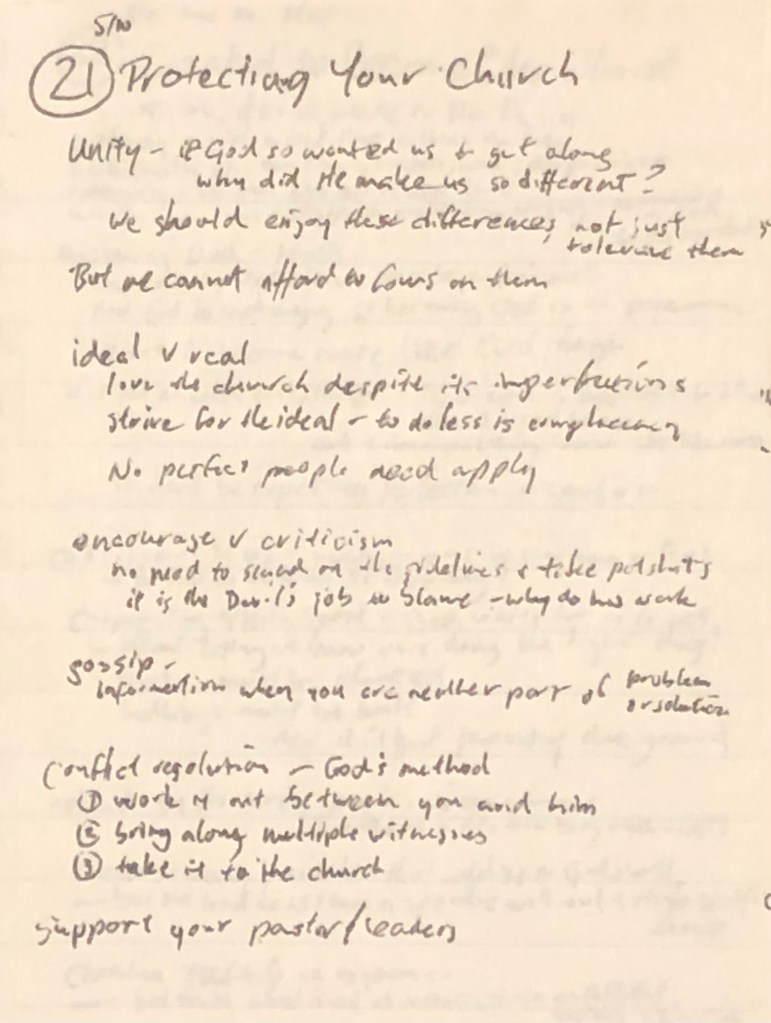 5/10
21 Protecting Your Church
Unity - if God so wanted us to get along
why did He make us so different?
We should enjoy these differences, not just
tolerate them
But we cannot afford to focus on them
ideal v real
love the church despite its imperfections
strive for the ideal - to do less is complacency
No perfect people need apply
encourage v criticism
no need to stand on the sidelines & take potshots
it is the Devil's job to blame - why do his work
gossip -
information when you are neither part of problem
or solution
Conflict resolution - God's method
① work it out between you and him
② bring along multiple witnesses
③ take it to the church
Support your pastor/leaders